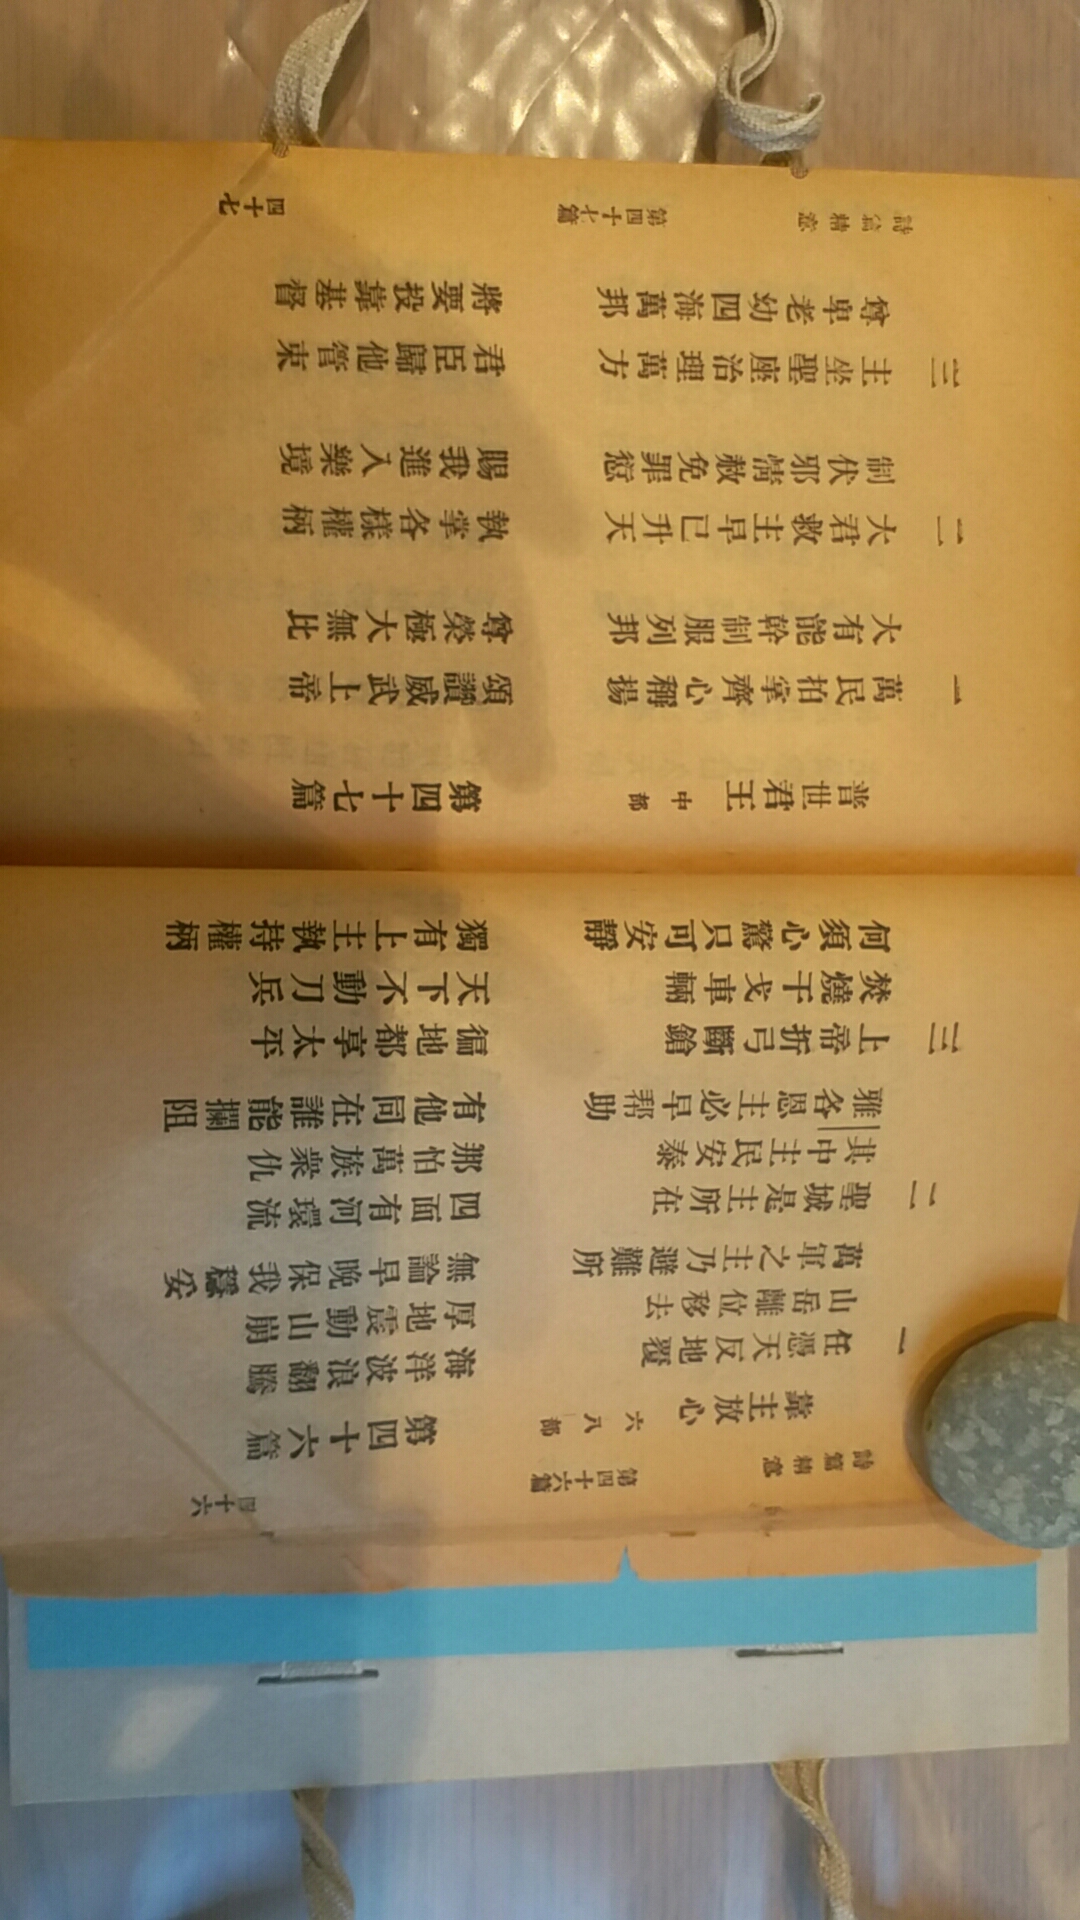 詩篇精意 第四十六篇 四十六
靠主放心 六八部 第四十六篇
一 任憑天反地覆 海洋波浪翻騰
山岳離位移去 厚地震動山崩
萬軍之主乃避難所 無論早晚保我穩妥
二 聖城是主所在 四面有河環流
其中主民安泰 那怕萬族衆仇
雅各恩主必早幫助 有他同在誰能攔阻
三 上帝折弓斷鎗 徧地都享太平
焚燒干戈車輛 天下不動刀兵
何須心驚只可安靜 獨有上主執持權柄
普世君王 中部 第四十七篇
一 萬民拍掌齊心稱揚 頌讚威武上帝
大有能幹制服列邦 尊榮極大無比
二 大君救主早已升天 執掌各樣權柄
制伏邪情赦免罪愆 賜我進入樂境
三 主坐聖座治理萬方 君臣歸他管束
尊卑老幼四海萬邦 將要投靠基督
詩篇精意 第四十七篇 四十七